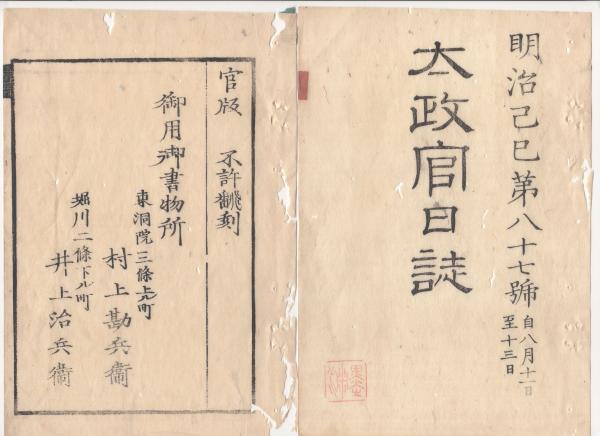 明治己巳第八十七號
自八月十一日
至十三日
太政官日誌
官版 不許飜刻
御用御書物所
東洞院三條上ル町
村上勘兵衞
堀川二條下ル町
井上治兵衞